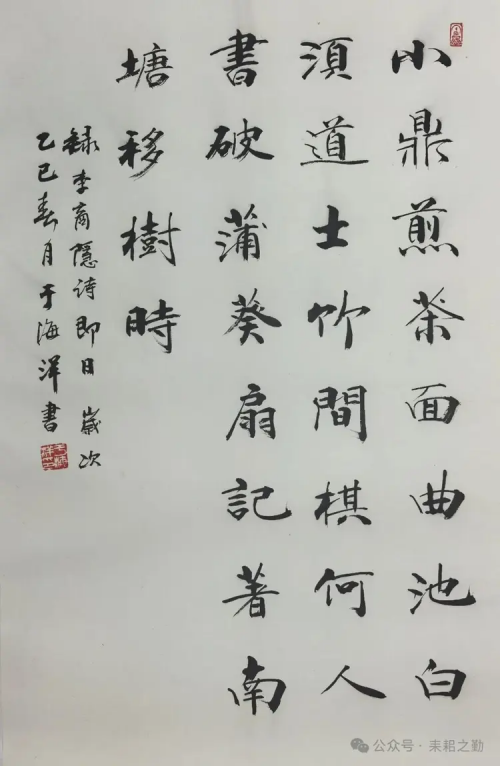 小鼎煎茶面曲池白
須道士竹間棋何人
書破蒲葵扇記著南
塘移樹時
録李商隱诗即日 歲次
乙巳春月于海洋書
公众号·耒耜之勤